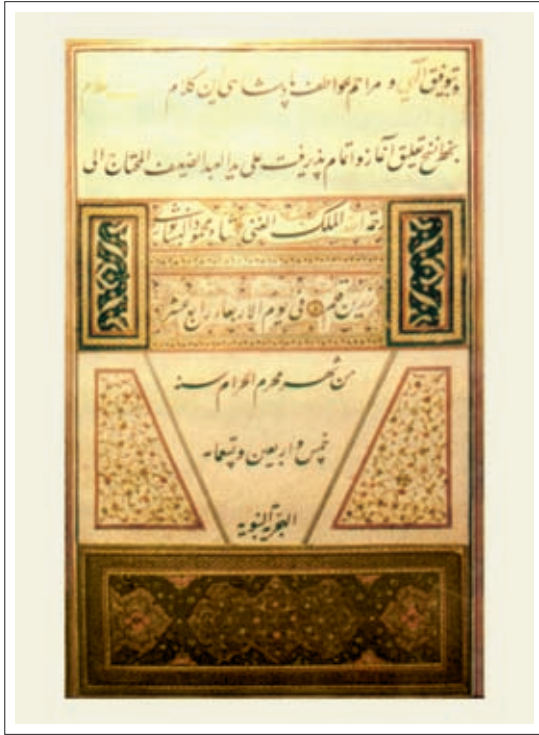 و بتوفیق الهی و مراحم عواطف پادشاهی این کلام
بخط نسخ تعلیق آغاز و اتمام پذیرفت علی ید العبد الضعیف المحتاج الی
الملک الغنی شاه محمود النیسابوری
زرین قلم فی یوم الاربعاء رابع عشر
من شهر محرم الحرام سنه
خمس و اربعین و تسعمایه
الهجریة النبویه